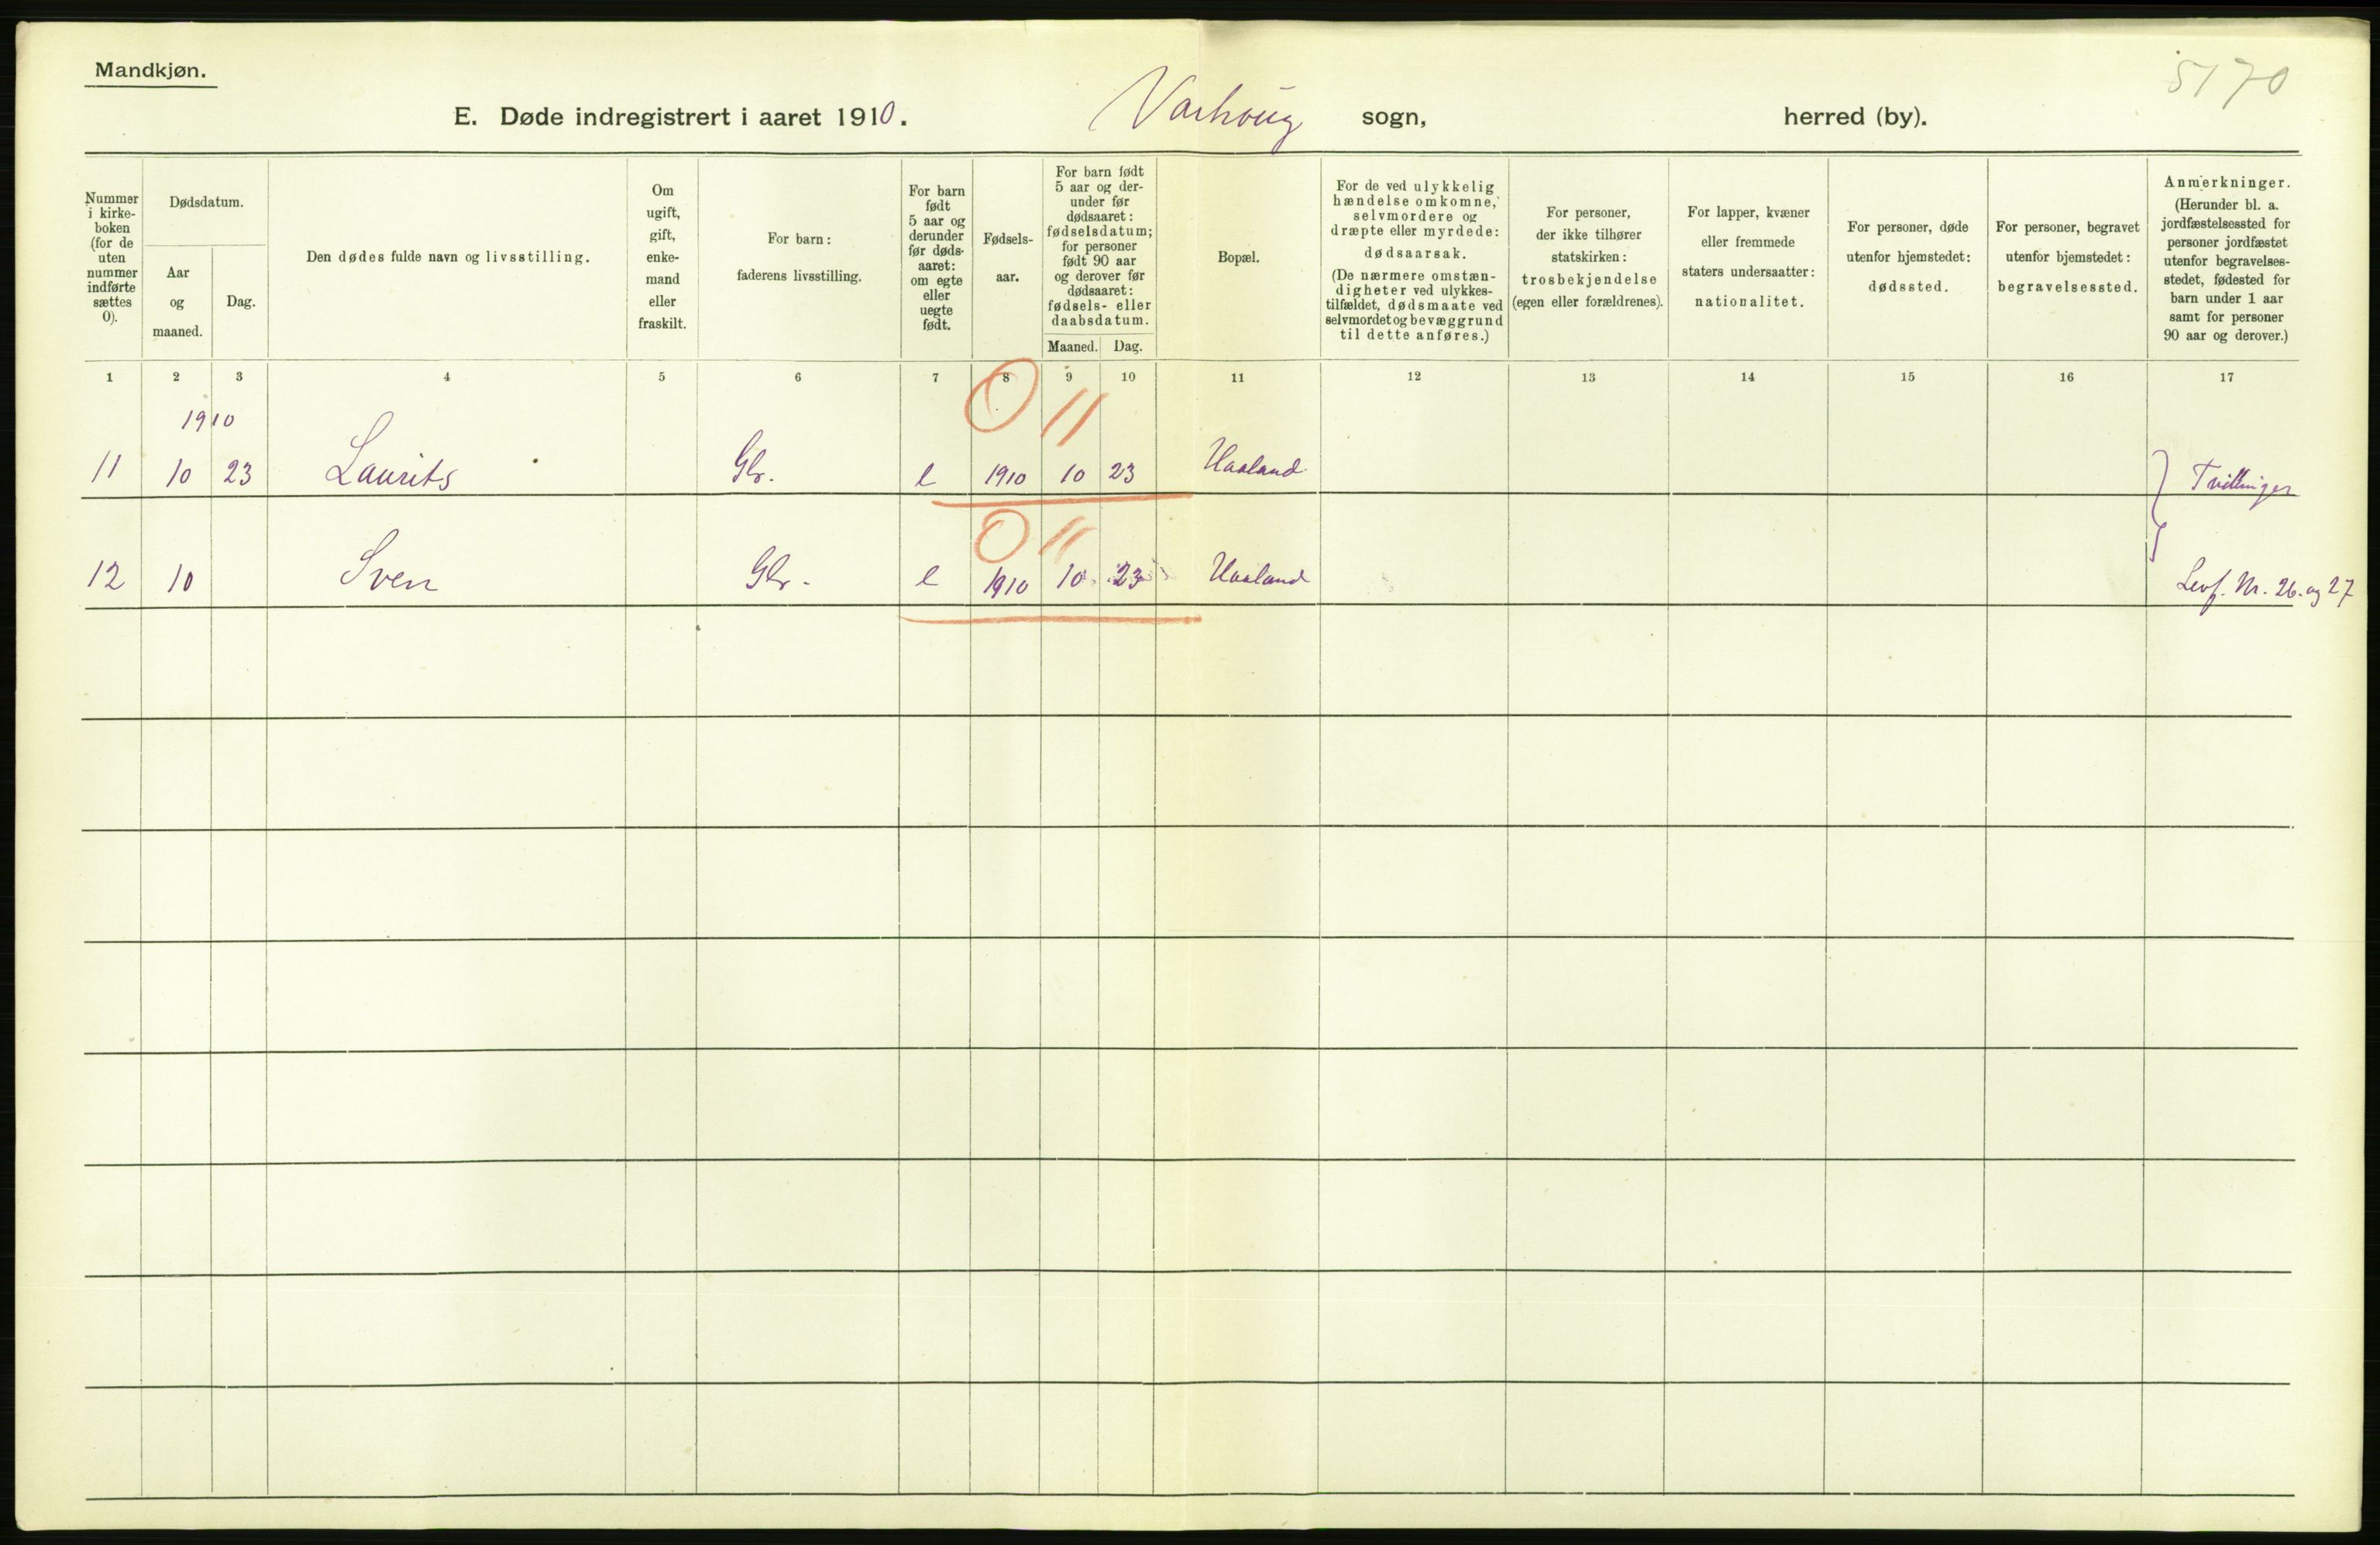 Mandkjøn.
5170
E. Døde indregistrert i aaret 1910. Varhoug sogn, herred (by).
Nummer
i kirke-
boken
(for de
uten
nummer
indførte
sættes
0).
Dødsdatum.
Aar
og
maaned.
Dag.
Den dødes fulde navn og livsstilling.
Om
ugift,
gift,
enke-
mand
eller
fraskilt.
For barn:
faderens livsstilling.
For barn
født
5 aar og
derunder
før døds-
aaret:
om egte
eller
uegte
født.
Fødsels-
aar.
For barn født
5 aar og der-
under før
dødsaaret:
fødselsdatum;
for personer
født 90 aar
og derover før
dødsaaret:
fødsels- eller
daabsdatum.
Maaned. Dag.
Bopæl.
For de ved ulykkelig
hændelse omkomne,
selvmordere og
dræpte eller myrdede:
dødsaarsak.
(De nærmere omstæn-
digheter ved ulykkes-
tilfældet, dødsmaate ved
selvmordet og bevæggrund
til dette anføres.)
For personer,
der ikke tilhører
statskirken:
trosbekjendelse
(egen eller forældrenes).
For lapper, kvæner
eller fremmede
staters undersaatter:
nationalitet.
For personer, døde
utenfor hjemstedet:
dødssted.
For personer, begravet
utenfor hjemstedet:
begravelsessted.
Anmerkninger.
(Herunder bl. a.
jordfæstelsessted for
personer jordfæstet
utenfor begravelses-
stedet, fødested for
barn under 1 aar
samt for personer
90 aar og derover.)
1 2 3 4 5 6 7 8 9 10 11 12 13 14 15 16 17
1910
0 11
11 10 23 Laurits Gbr. e 1910 10 23 Haaland Tvillinger
0 11
12 10 Sven Gbr. e 1910 10 23 Haaland Levf. Nr. 26. og 27